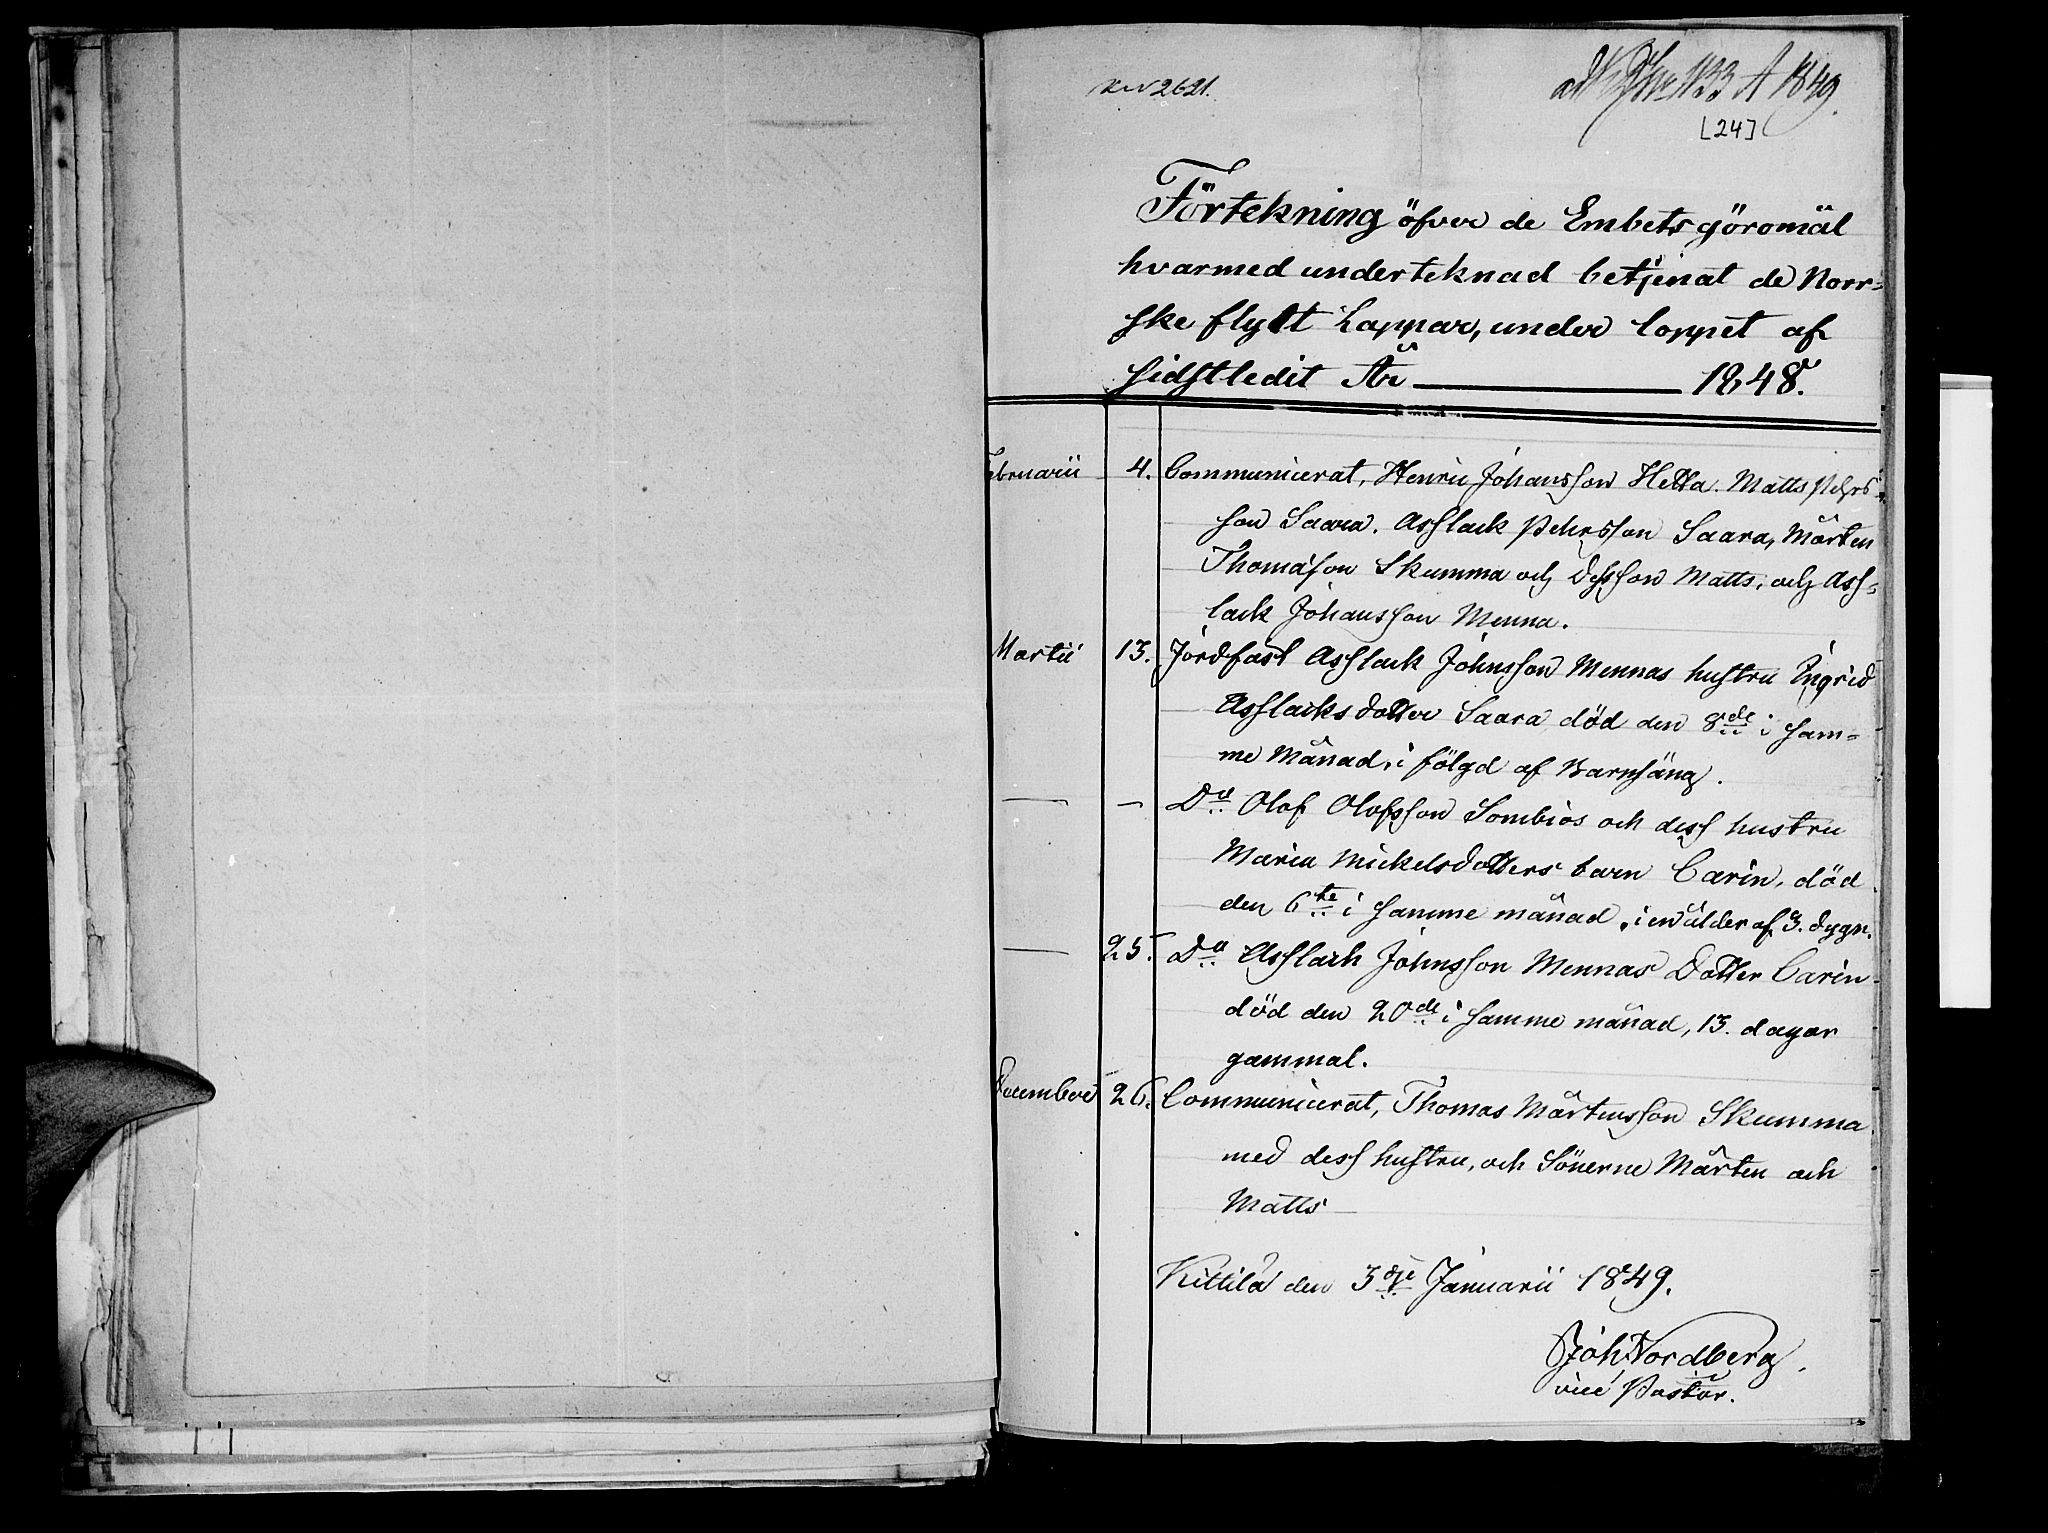 2621.
1133 A 1849.
[24]
Förtekning öfver de Embets göromål
hvarmed underteknad betjenat de Norr-
ske flytt Lappar, under loppet af
sidstledit År 1848.
Februarii 4. Communicerat, Henric Johansson Hetta. Matts Pehrs-
son Saara. Asslack Pehrsson Saara, Mårten
Thomasson Skumma och Matts, och Ass-
lack Johansson Menna.
Martii 13. Jordfäst Asslack Johnsson Mennas hustru Ingrid
Asslacks dotter Saara död den 8de i sam-
me Månad, i fölgd af Barnsäng.
— — Do Olof Olofsson Sombios och dess hustru
Maria Mickelsdotters barn Carin, död
den 6te i samme månad, i en ålder af 3. dygn.
— 25. Do Asslack Johnsson Mennas Dotter Carin
död den 20de i samme månad, 13. dagar
gammal.
December 26. Communicerat, Thomas Mårtensson Skumma
med dess hustru, och Sönerne Mårten och
Matts
Kittilä den 3dje Januarii 1849.
Joh. Nordberg.
vice Pastor.